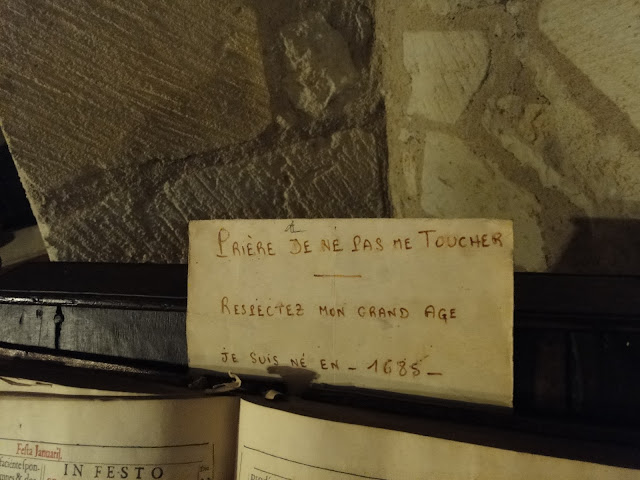 PRIÈRE DE NÉ PAS ME TOUCHER
RESPECTEZ MON GRAND AGE
JE SUIS NÉ EN - 1685 -
Feſta Januarij.
faciente ſpon-
IN FESTO